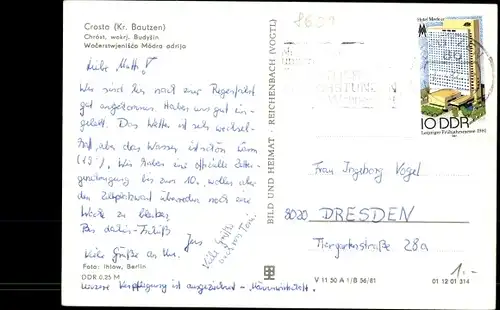 Crosta (Kr. Bautzen)
Chróst, wokrj. Budyšin
Wočerstwjenišćo Módra adrija
Liebe Mutti!
Wir sind hier nach zur Regenfahrt
gut angekommen. Haben uns gut ein-
gelebt. Das Wetter ist sehr wechsel-
haft, aber das Wasser ist schön warm
(19°). Wir haben eine offizielle Zelte-
genehmigung bis zum 10., wollen aber
den Zeltplatzwart überreden noch eine
Woche zu bleiben.
Bis dahin
Jens
Viele Grüße an Uwe.
Viele Grüße
auch von Toni.
Foto: Ihlow, Berlin
DDR 0,25 M
Unsere Verpflegung ist ausgezeichnet - Männerwirtschaft.
BILD UND HEIMAT · REICHENBACH (VOGTL)
8609
Hotel Merkur
10 DDR
Leipziger Frühjahrsmesse 1982
Frau Ingeborg Vogel
8020 DRESDEN
Tiergartenstraße 28a
V 11 50 A 1/B 56/81
01 12 01 314
1.-